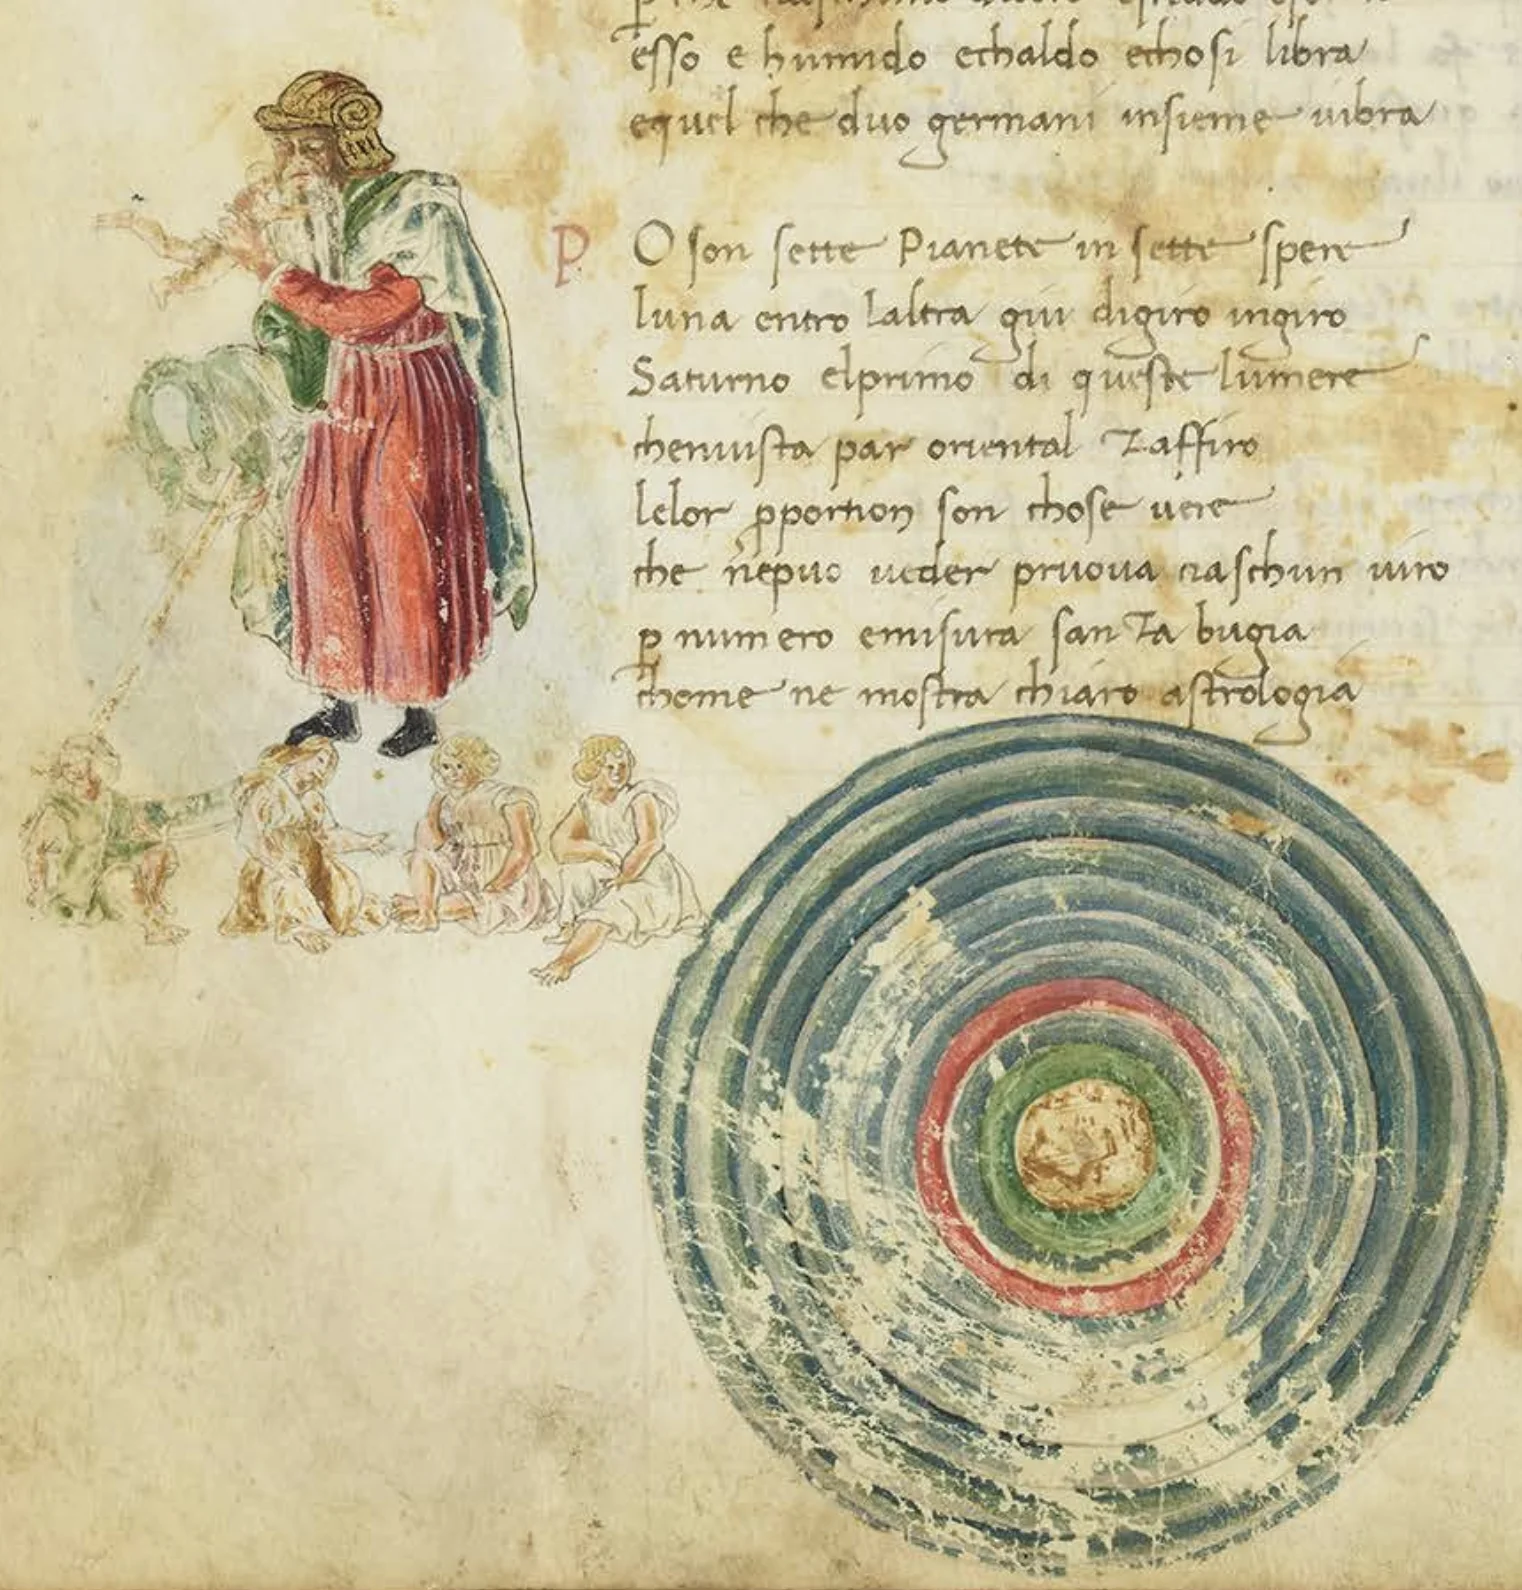 esso e humido echaldo echosi libra
equel che duo germani insieme uibra
P O son sette Pianete in sette spere
luna entro laltra qui digiro ingiro
Saturno elprimo di queste lumere
chenuista par oriental Zaffiro
lelor pportion son chose uere
che nepuo ueder pruoua ciaschun uiro
p numero emisura sanza bugia
chome ne mostra chiaro astrologia